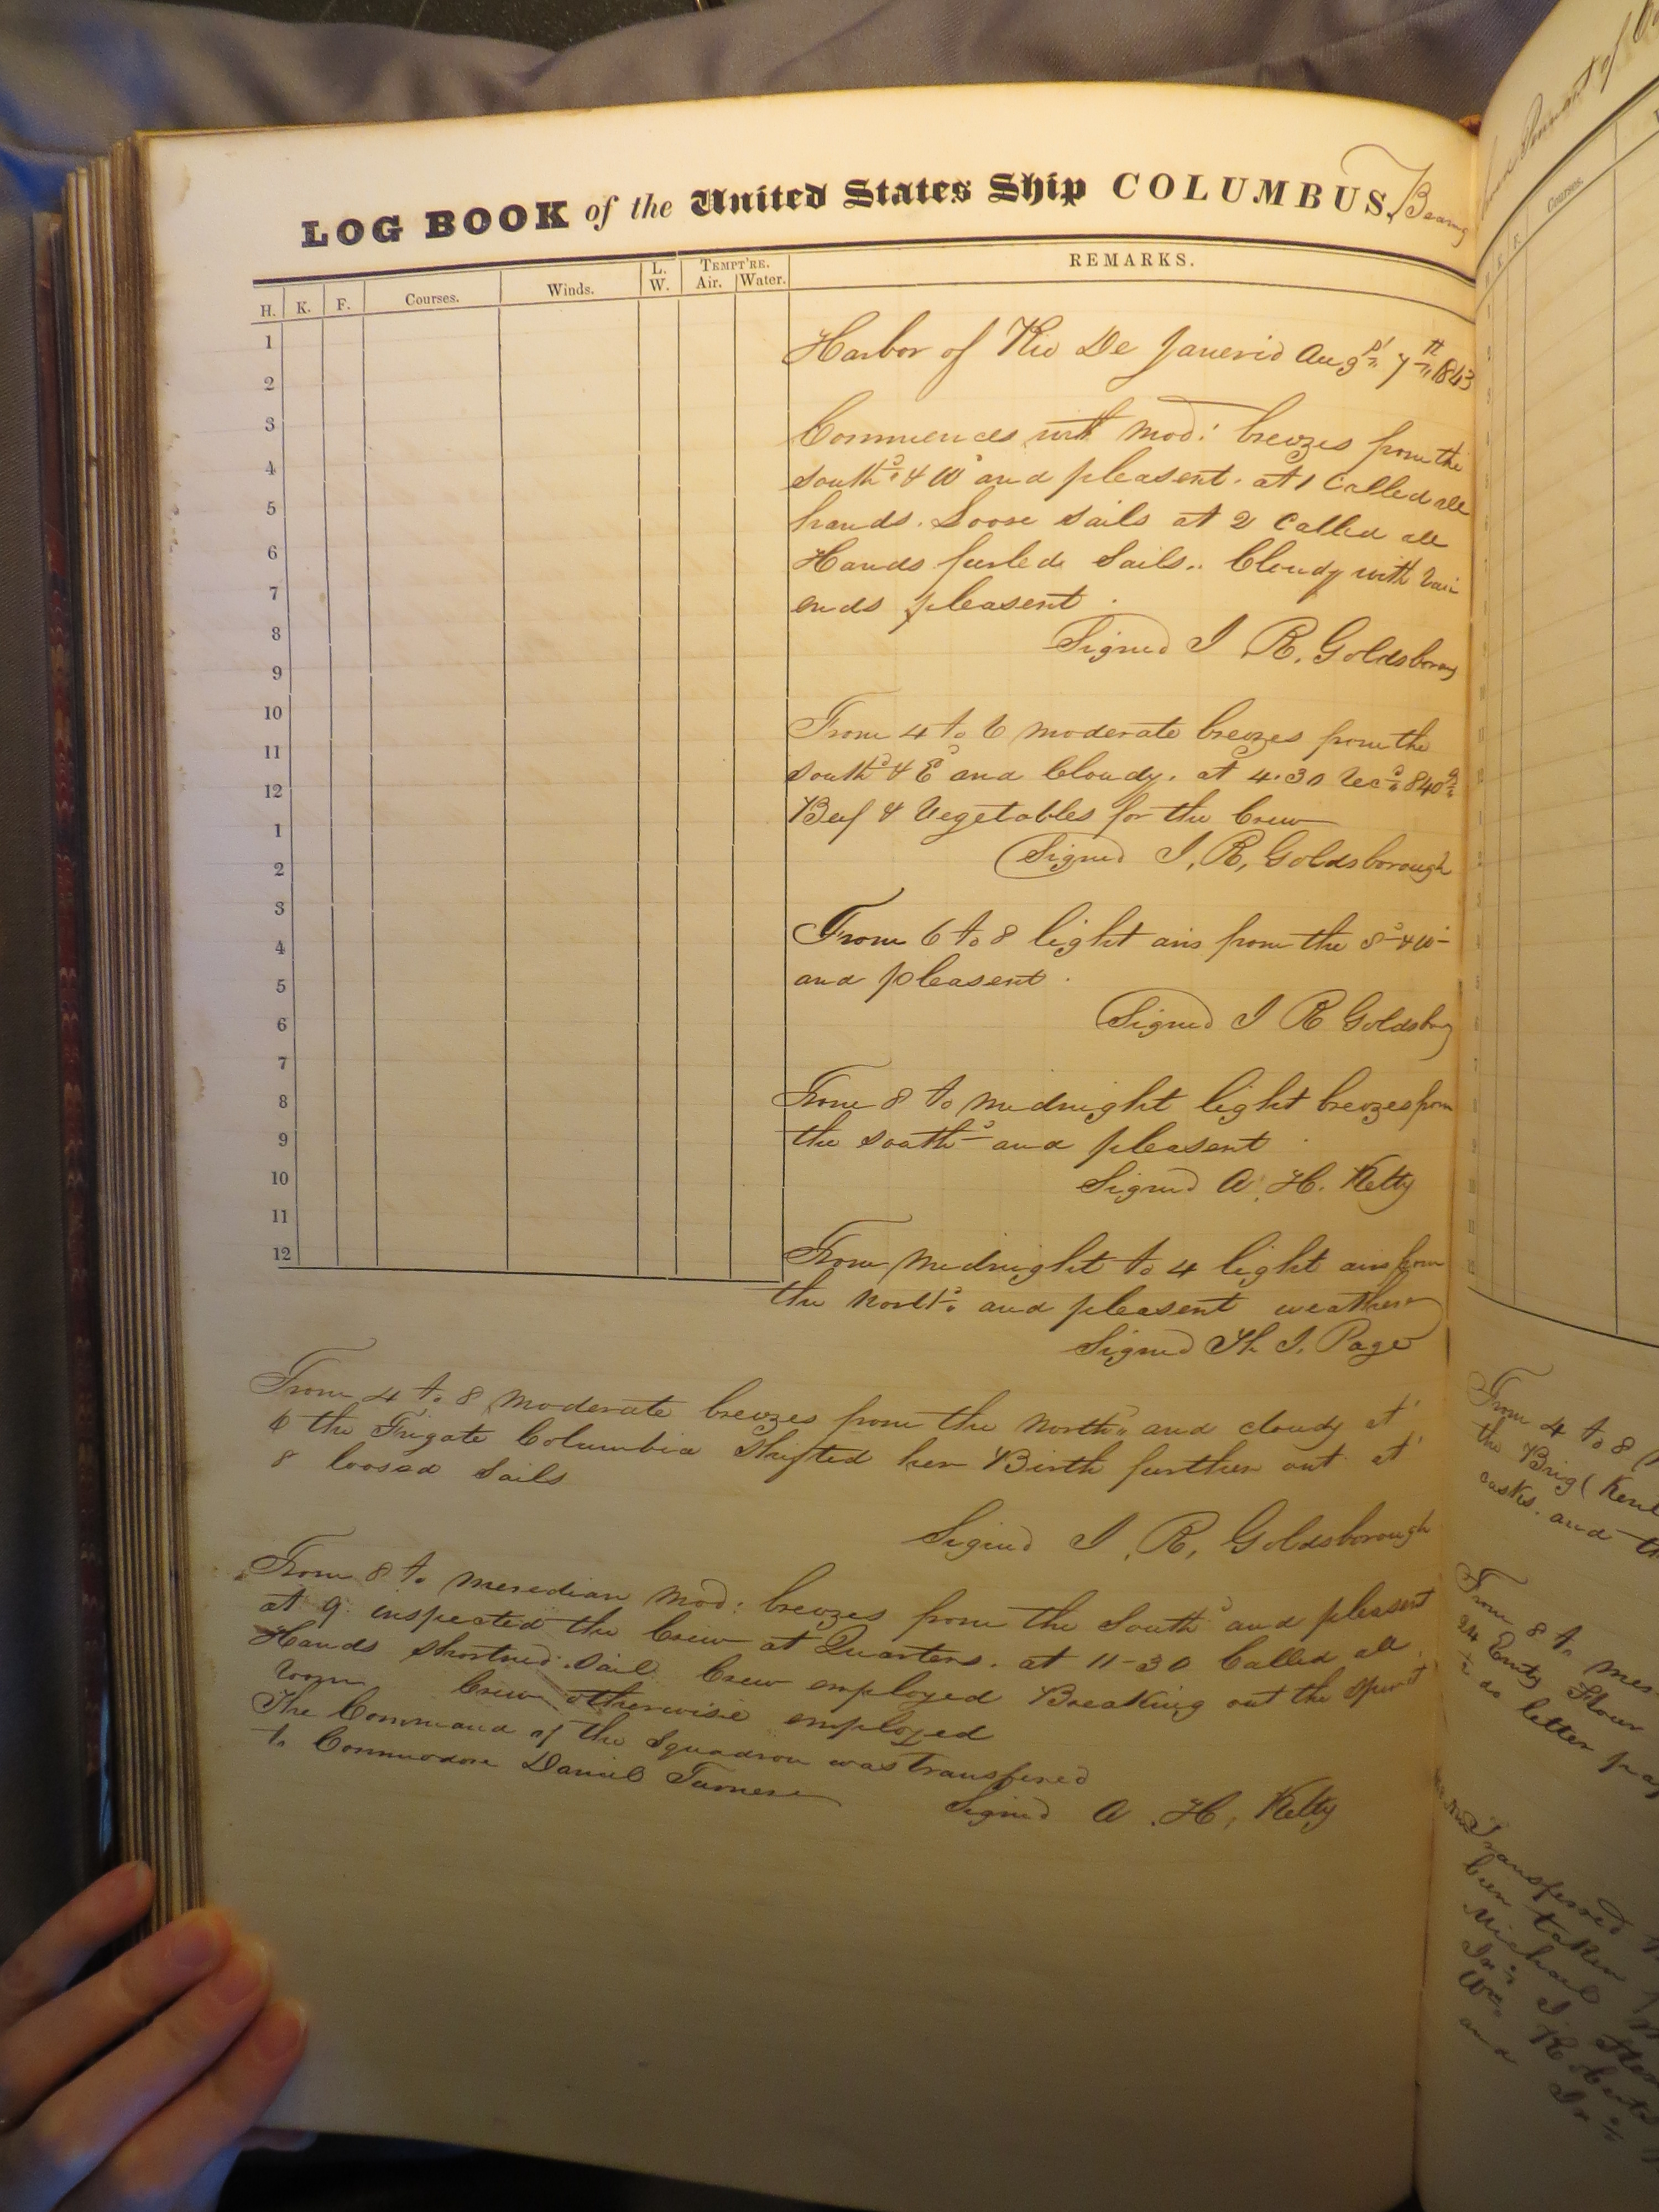 LOG BOOK of the United States Ship COLUMBUS, Bearing
H. K. F. Courses. Winds. L. W. TEMPT'RE. Air. Water. REMARKS.
1
2
3
4
5
6
7
8
9
10
11
12
1
2
3
4
5
6
7
8
9
10
11
12
Harbor of Rio De Janerio Augst 7th 1843
Commences with mod: breezes from the
southd & Wd and pleasent. at 1 Called all
hands. Loose sails at 2 Called all
Hands furled Sails.. Cloudy with
ends pleasent.
Signed J R. Goldsborough
From 4 to 6 moderate breezes from the
southd & Ed and Cloudy. at 4.30 Recd 840
Beef & Vegetables for the Crew
Signed J. R. Goldsborough
From 6 to 8 light airs from the Sd & Wd
and pleasent.
Signed J R Goldsboroug
From 8 to midnight light breezes from
the southd and pleasent
Signed A. H. Kelty
From Midnight to 4 light airs from
the northd and pleasent weather
Signed Th. J. Page
From 4 to 8 moderate breezes from the northd and cloudy at
6 the Frigate Columbia Shifted her Birth further out at
8 loosed Sails
Signed J. R. Goldsborough
From 8 to meredian mod: breezes from the Southd and pleasent
at 9 inspected the Crew at Quarters. at 11-30 Called all
Hands shortned sail. Crew employed Breaking out the Spirit
room Crew otherwise employed
The Command of the Squadron was transfered
to Commodore Daniel Turner
Signed A. H. Kelty
Courses.
From 4 to 8
the Brig
casks. and
From 8 to
24 Empty Flour
do letter
Transferred
been taken
Michael
and